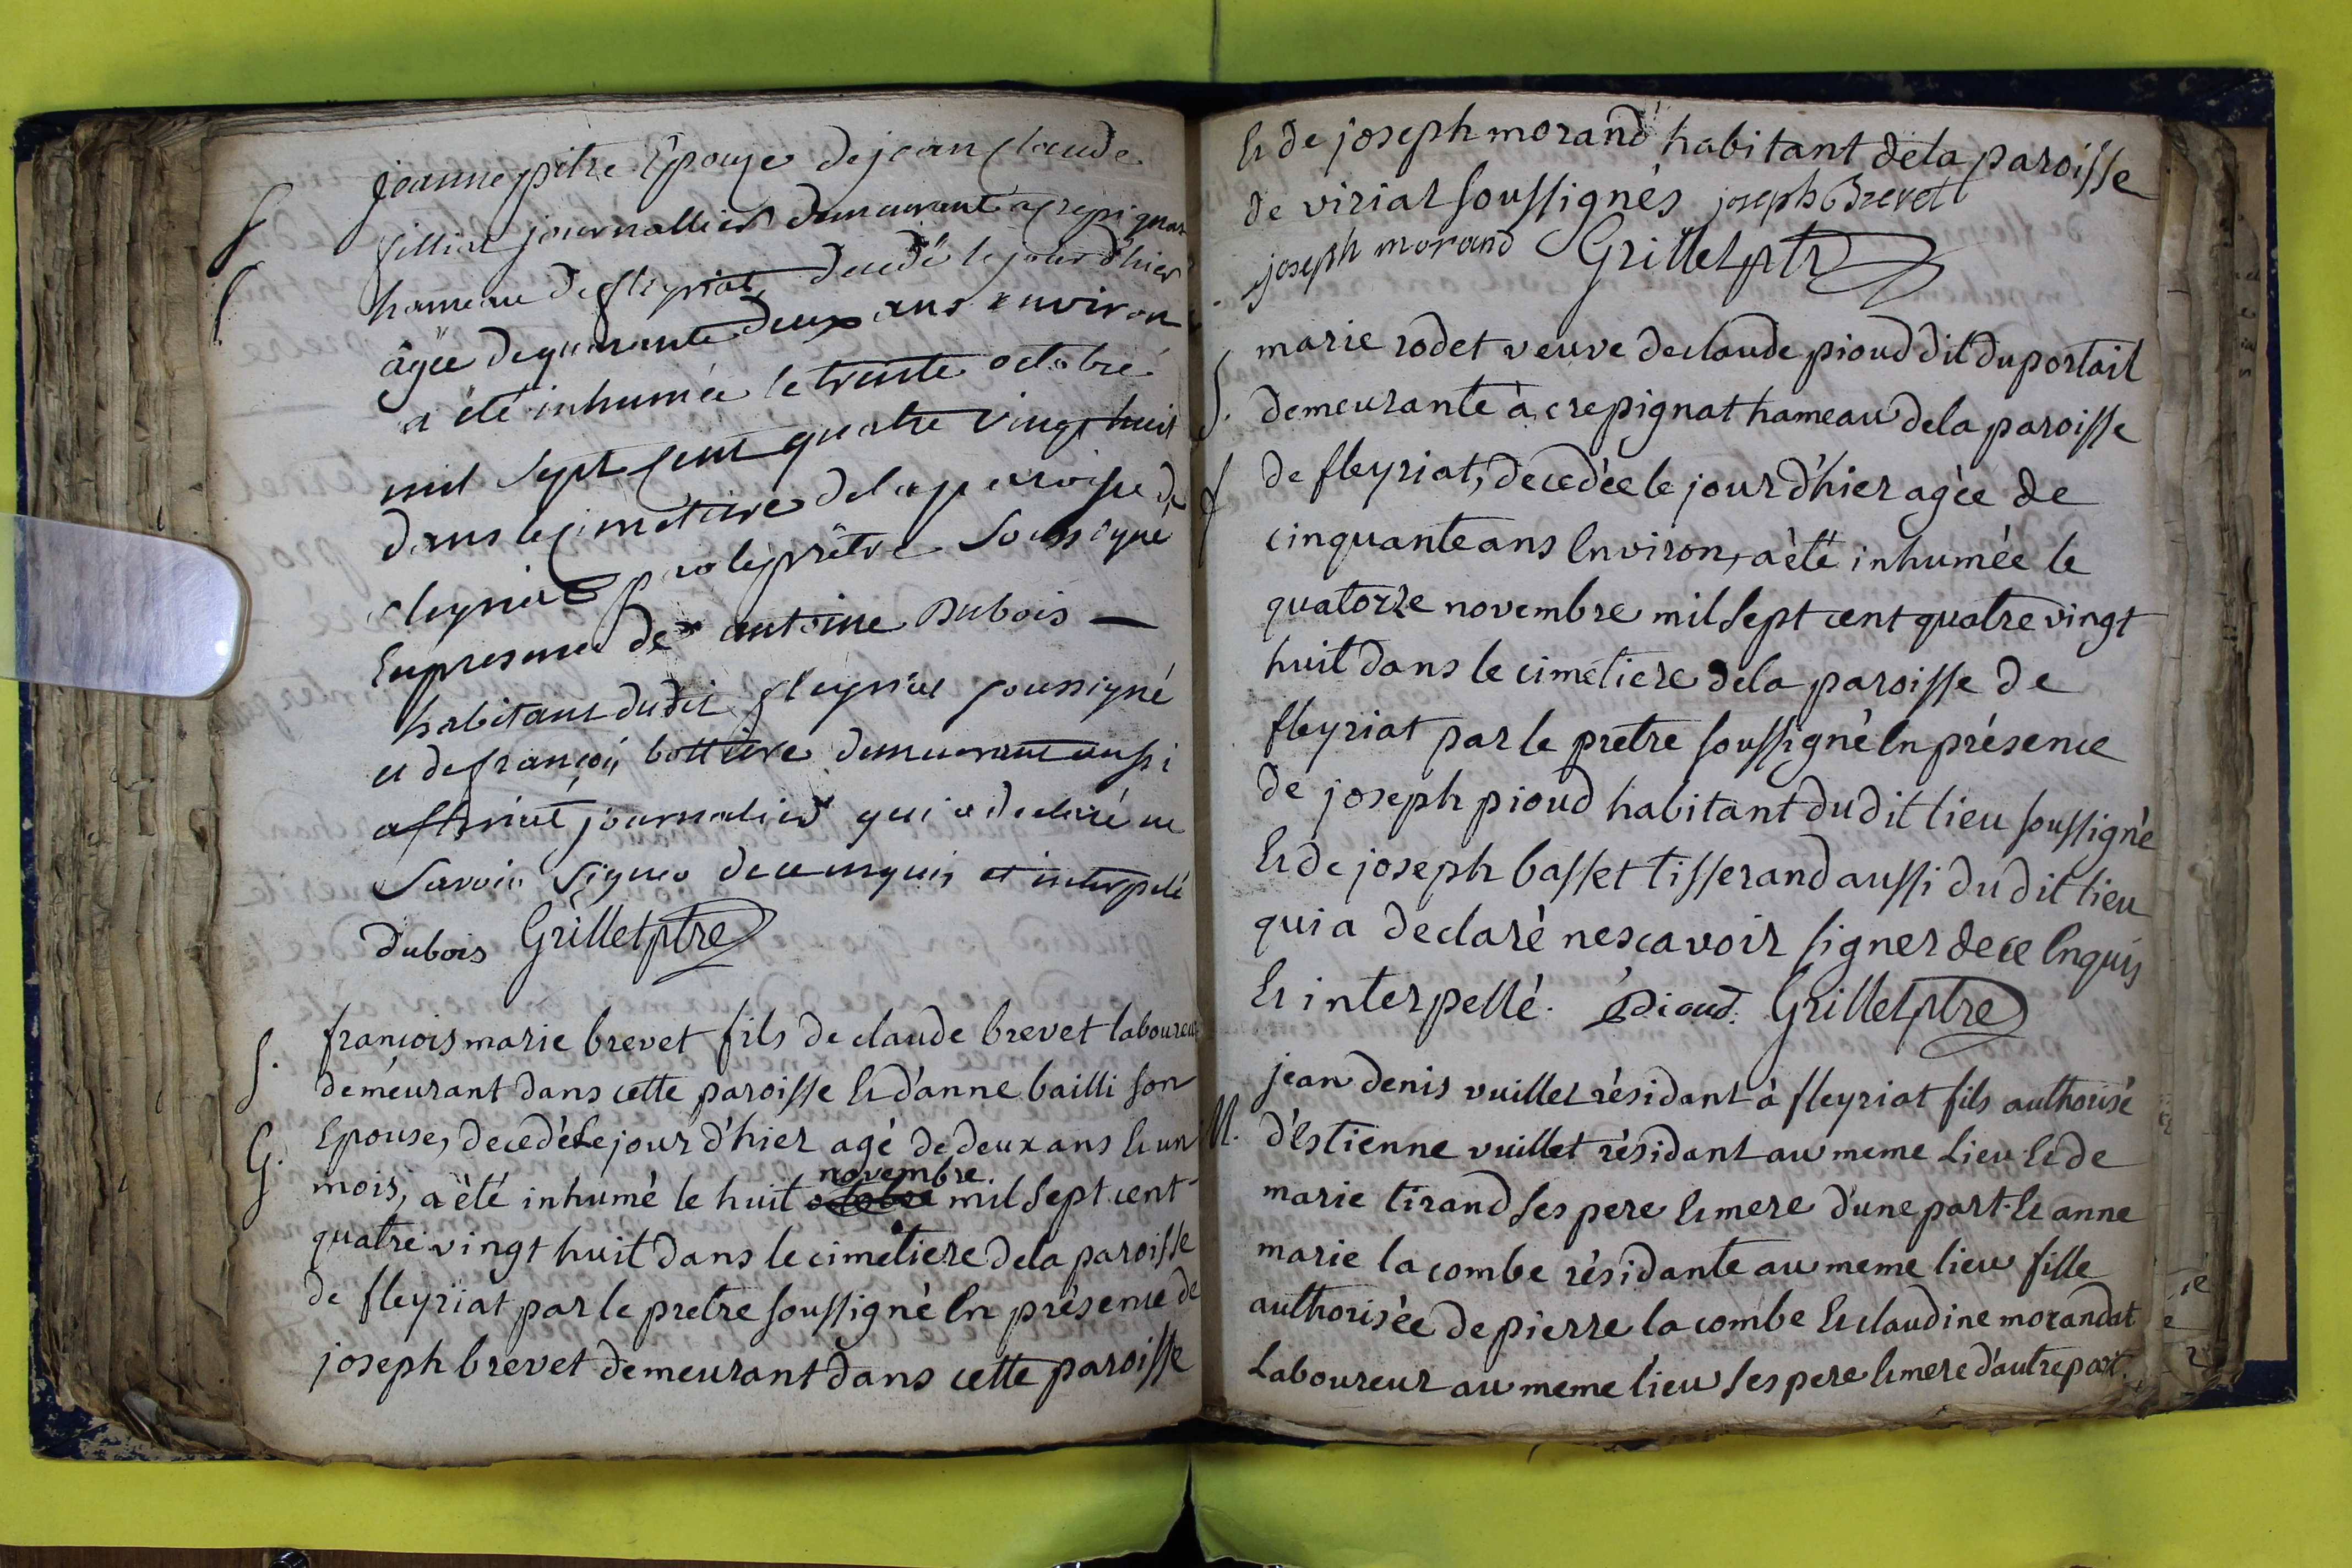 jeanne pitre Epouse de jean claude
S filliat journallier demeurante a crepignat
f hameau de fleyriat, decedé le jour d'hier
âgée de quarante deux ans environ
a été inhumée le trente octobre
mil sept cent quatre vingt huit
dans le cimetiere de la paroisse de
fleyriat par le prêtre soussigné
En presence de antoine Dubois —
habitant dudit fleyriat soussigné
et de françois bottiere demeurant aussi
a fleriat journalier qui a declaré ne
savoir signer de ce enquis et interpelé
dubois Grillet ptre
S. françois marie brevet fils de claude brevet laboureur
demeurant dans cette paroisse Et d'anne bailli son
G. Epouse, decedé Le jour d'hier agé de deux ans Et un
mois, a èté inhumé le huit octobre novembre mil sept cent
quatre vingt huit dans le cimetiere de la paroisse
de fleyriat par le pretre soussigné En présence de
joseph brevet demeurant dans cette paroisse
Et de joseph morand habitant de la paroisse
de viriat soussignés joseph Brevet
joseph morand Grillet ptr
marie rodet veuve de claude pioud dit du portail
S. demeurante à crepignat hameau de la paroisse
f de fleyriat, decedée le jour d'hier agée de
cinquante ans Environ, a èté inhumée le
quatorze novembre mil sept cent quatre vingt
huit dans le cimetiere de la paroisse de
fleyriat par le pretre soussigné En présence
de joseph pioud habitant du dit lieu soussigné
Et de joseph basset tisserand aussi du dit lieu
qui a declaré ne scavoir signer de ce Enquis
Et interpellé. Pioud. Grillet ptre
jean denis vuillet résidant à fleyriat fils authorisé
M. d'Estienne vuillet résidant au meme Lieu Et de
marie tirand ses pere Et mere d'une part Et anne
marie la combe résidante au meme lieu fille
authorisée de pierre la combe Et claudine morandat
Laboureur au meme lieu ses pere Et mere d'autre part.